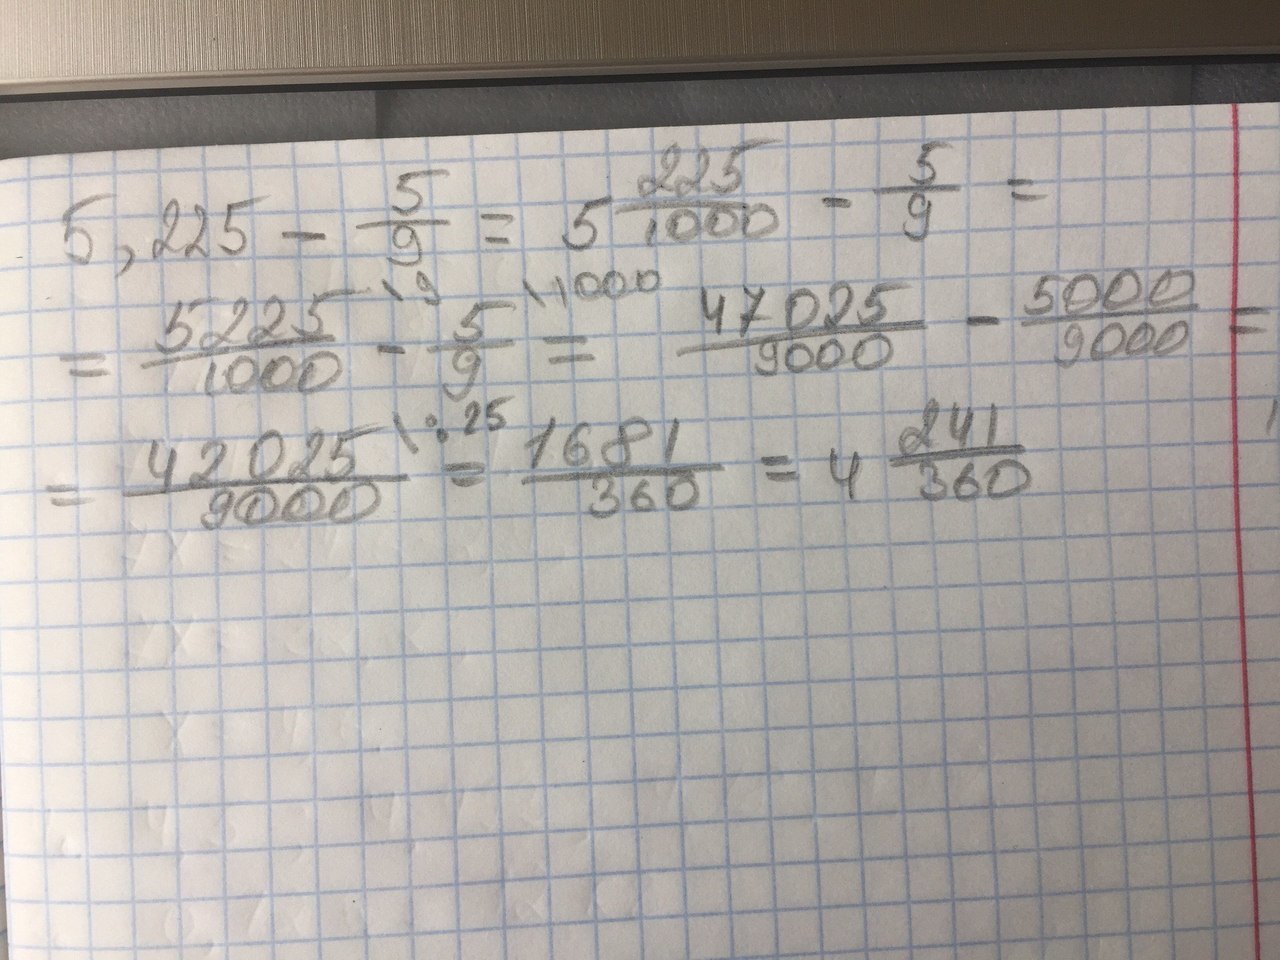 5,225 - 5/9 = 5 225/1000 - 5/9 =
= 5225/1000 \9 - 5/9 \1000 = 47025/9000 - 5000/9000 =
= 42025/9000 \:25 = 1681/360 = 4 241/360